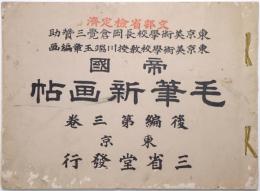 濟定檢省部文
助賛三覺倉岡長校學術美京東
畫編章玉端川授敎校學術美京東
國帝
帖畫新筆毛
卷三第編後
京東
行發堂省三